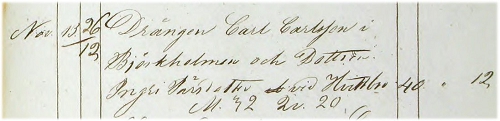 Nov. 15 26/12 Drängen Carl Carlsson i
Björkholmen och Dottren
Ingri Pärsdotter vid 40 " 12
M. 32 Qv. 20.